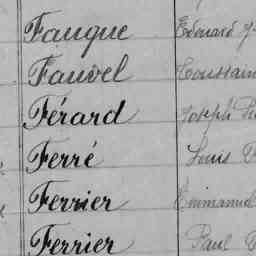 Fauque Edouard
Fauvel Toussain
Férard Joseph
Ferré Louis
Ferrier Emmanuel
Ferrier Paul